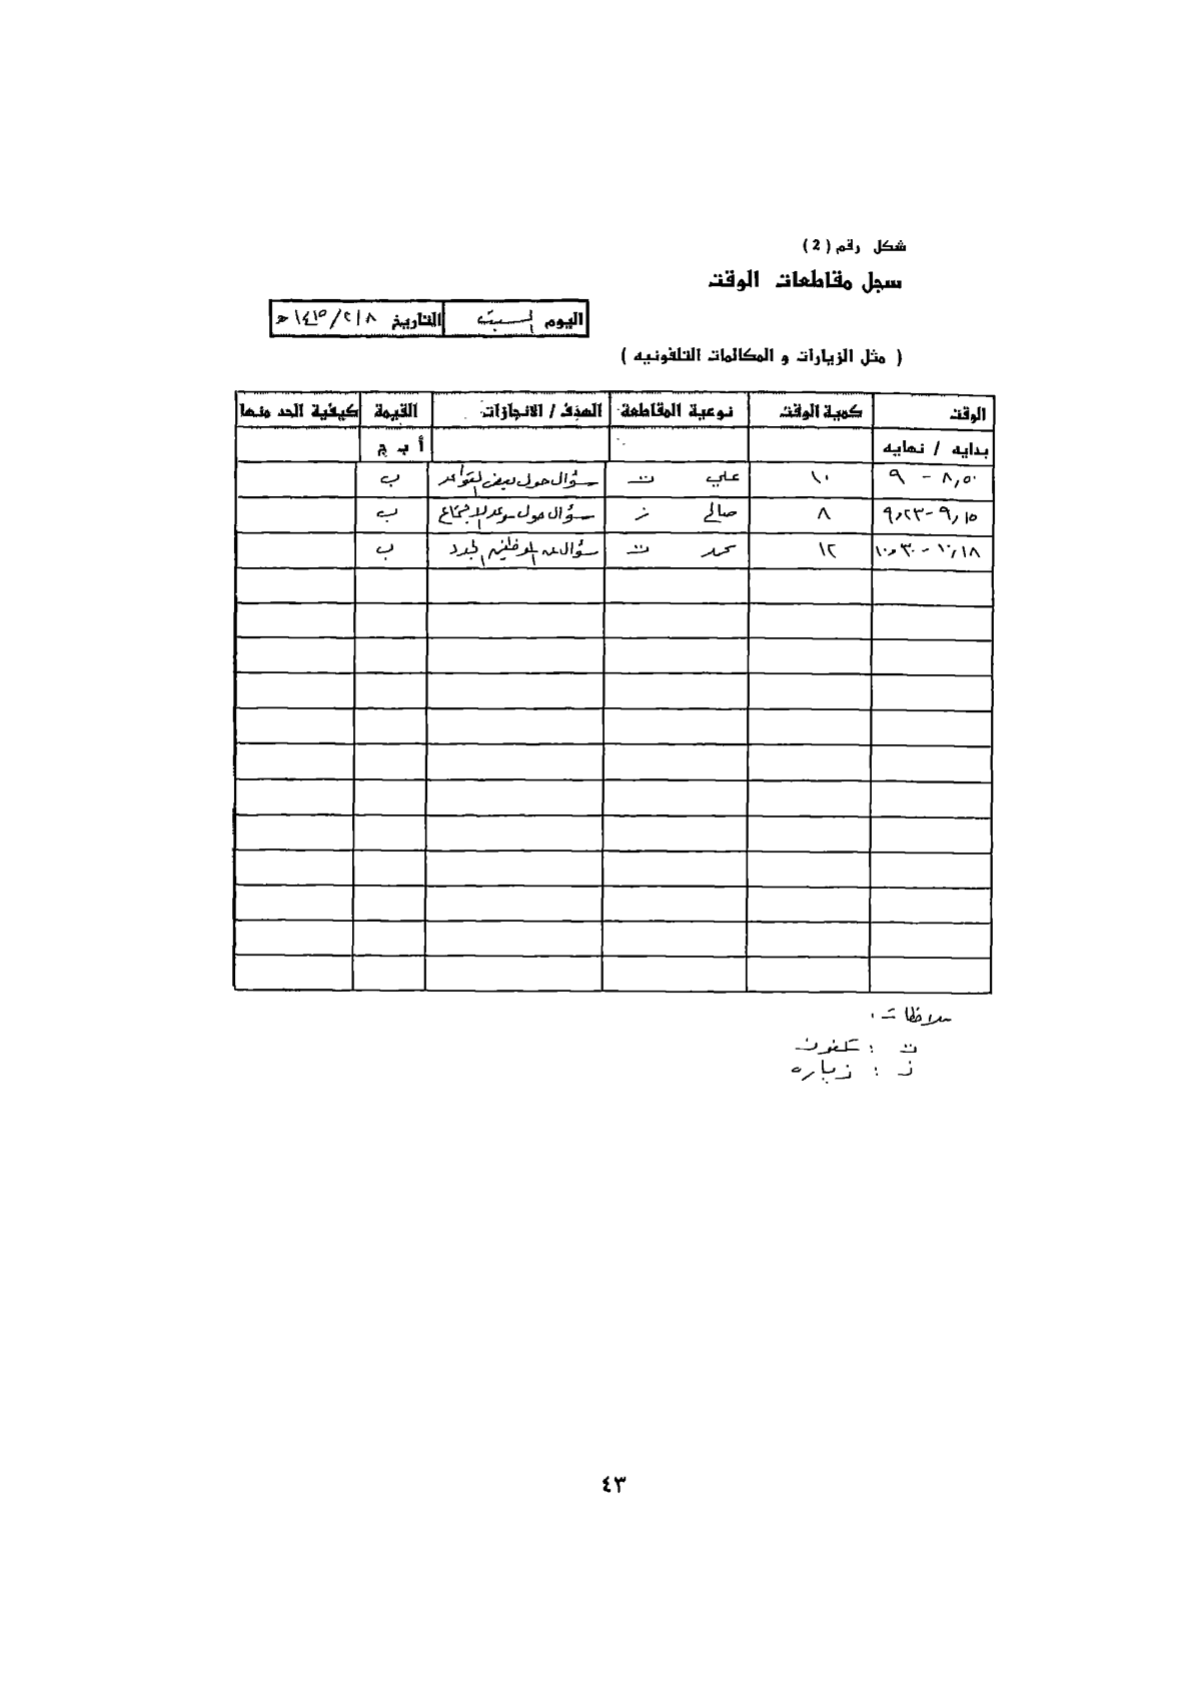 شكل رقم ( 2 )
سجل مقاطعات الوقت
اليوم السبت التاريخ ١٤١٥/٢/٨ هـ
( مثل الزيارات و المكالمات التلفونيه )
الوقت كمية الوقت نوعية المقاطعة الهدف / الانجازات القيمة كيفية الحد منها
بدايه / نهايه أ ب ج
٨,٥٠ - ٩ ١٠ علي ت سؤال حول بعض القواعد ب
٩,١٥ - ٩,٢٣ ٨ صالح ز سؤال حول موعد الاجتماع ب
١٠,١٨ - ١٠,٣٠ ١٢ محمد ت سؤال عن الموظفين الجدد ب
ملاحظات :
ت : تلفون
ز : زياره
٤٣